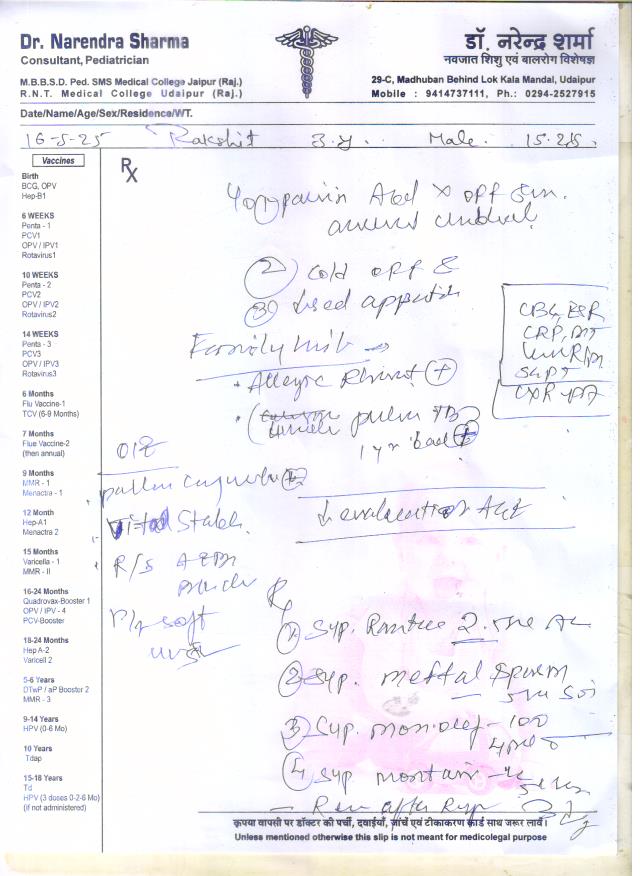 Dr. Narendra Sharma
Consultant, Pediatrician
M.B.B.S.D. Ped. SMS Medical College Jaipur (Raj.)
R.N.T. Medical College Udaipur (Raj.)
डॉ. नरेन्द्र शर्मा
नवजात शिशु एवं बालरोग विशेषज्ञ
29-C, Madhuban Behind Lok Kala Mandal, Udaipur
Mobile : 9414737111, Ph.: 0294-2527915
Date/Name/Age/Sex/Residence/WT.
16-5-25 Rakshit 3 y. Male.
Vaccines
Birth
BCG, OPV
Hep-B1
6 WEEKS
Penta - 1
PCV1
OPV / IPV1
Rotavirus1
10 WEEKS
Penta - 2
PCV2
OPV / IPV2
Rotavirus2
14 WEEKS
Penta - 3
PCV3
OPV / IPV3
Rotavirus3
6 Months
Flu Vaccine-1
TCV (6-9 Months)
7 Months
Flue Vaccine-2
(then annual)
9 Months
MMR - 1
Menactra - 1
12 Month
Hep-A1
Menactra 2
15 Months
Varicella - 1
MMR - II
16-24 Months
Quadrovax-Booster 1
OPV / IPV - 4
PCV-Booster
18-24 Months
Hep A-2
Varicell 2
5-6 Years
DTwP / aP Booster 2
MMR - 3
9-14 Years
HPV (0-6 Mo)
10 Years
Tdap
15-18 Years
Td
HPV (3 doses 0-2-6 Mo)
(if not administered)
Rx
1) pain in Abd x off &on
around umbilical
2) Cold off &
3) appetite
CBC, ESR
CRP, MT
SGPT
CXR
Family hist
Allergic Rhinit +
pulm TB
1 yr back +
O/E
Vital Stable
R/S
P/A soft
Rx
1) Syp.
2) Syp. meftal spasm
3) Syp. monocef - 100
4) Syp montair
Rev after
कृपया वापसी पर डॉक्टर की पर्ची, दवाईयाँ, जांचें एवं टीकाकरण कार्ड साथ जरूर लावें।
Unless mentioned otherwise this slip is not meant for medicolegal purpose